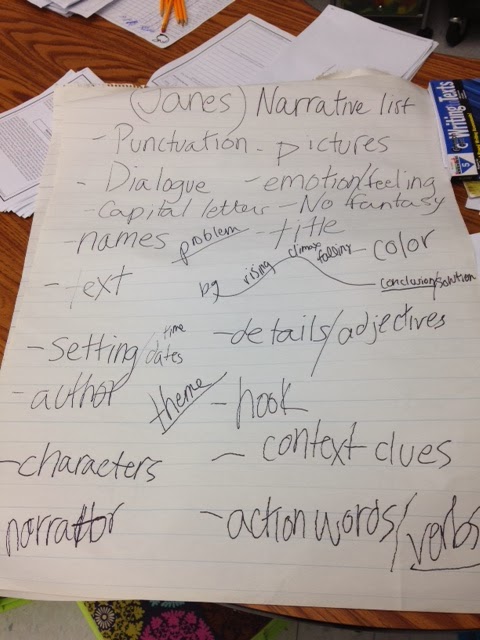 (Janes) Narrative list
- Punctuation - pictures
- Dialogue - emotion/feeling
- Capital letters - No fantasy
- names problem - title
- text bg rising climax falling conclusion/solution - color
- setting/time dates - details/adjectives
- author theme - hook
- characters - context clues
narrator - action words/verbs
Writing Texts
5